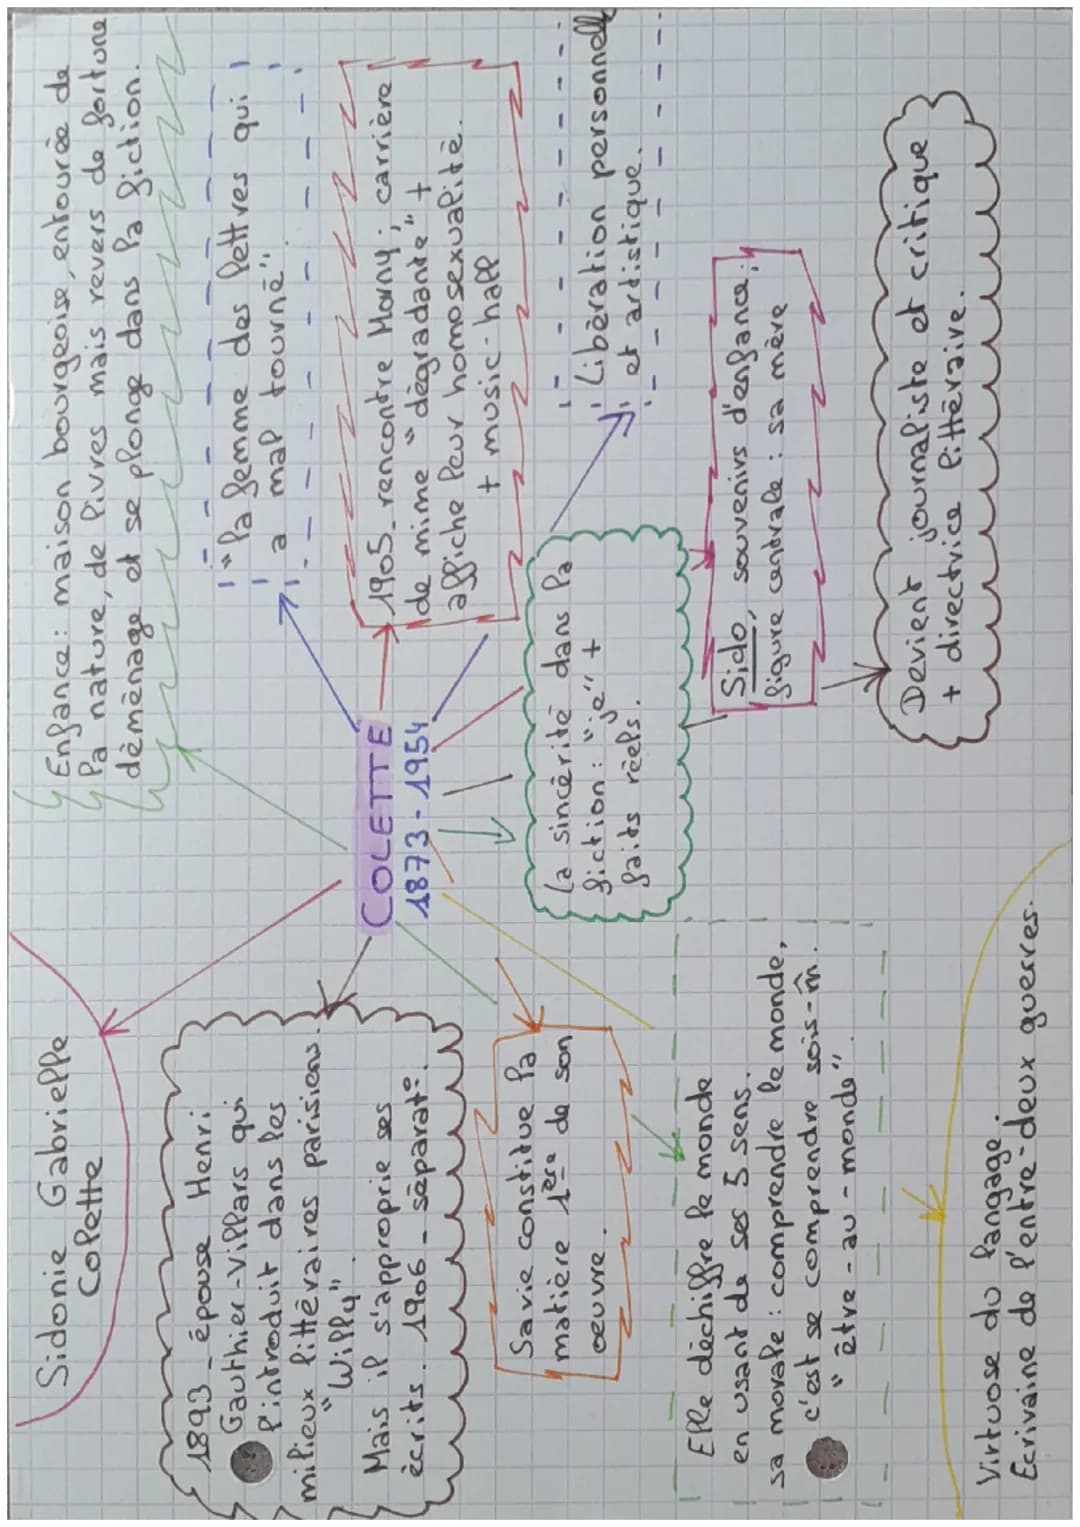 Sidonie Gabrielle
Colette
Enfance : maison bourgeoise, entourée de
la nature, de livres mais revers de fortune
déménage et se plonge dans la fiction.
1893 - épouse Henri
Gauthier-Villars qui
l'introduit dans les
milieux littéraires parisiens.
"Willy"
Mais il s'approprie ses
écrits. 1906 - séparat°.
COLETTE
1873 - 1954
"la femme des lettres qui
a mal tourné".
1905 - rencontre Morny ; carrière
de mime "dégradante" +
affiche leur homosexualité.
+ music-hall
Sa vie constitue la
matière 1ère de son
œuvre.
La sincérité dans la
fiction : "je" +
faits réels.
Libération personnelle
et artistique.
Elle déchiffre le monde
en usant de ses 5 sens.
sa morale : comprendre le monde,
c'est se comprendre sois-m̂.
"être - au - monde".
Sido, souvenirs d'enfance ;
figure centrale : sa mère
Devient journaliste et critique
+ directrice littéraire.
Virtuose du langage.
Ecrivaine de l'entre-deux guerres.